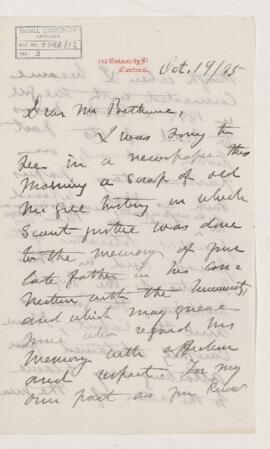 McGILL UNIVERSITY
ARCHIVES
ACC. NO.
REF. 3
University St
Montreal.
Oct. 19/95
Dear Mr Bethune,
I was sorry to
see in a newspaper this
morning a scrap of old
McGill history in which
scant justice was done
to the memory of your
late father in his con-
nection with the University,
and which may grieve
some who regard his
memory with affection
and respect. For my
own part as you know